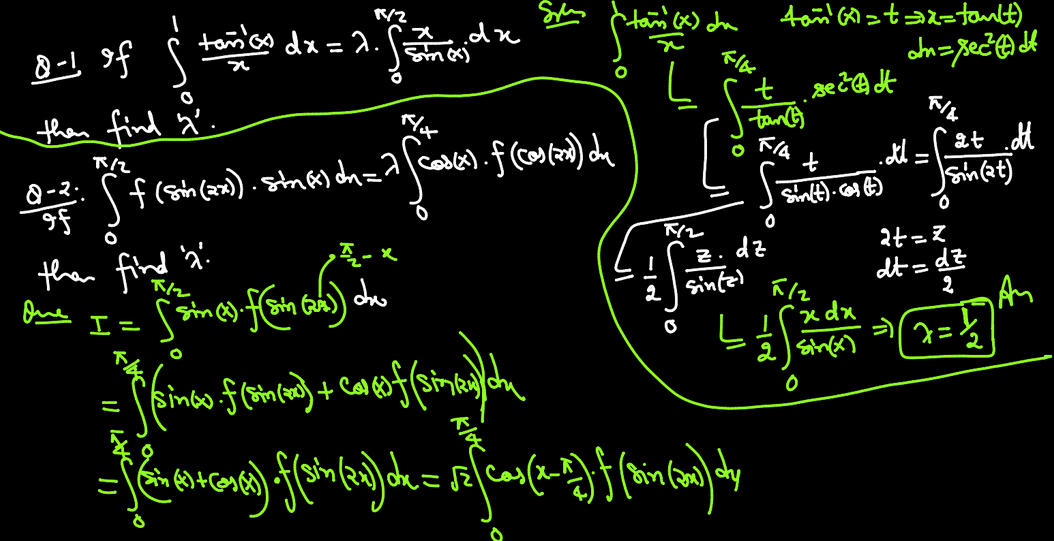 Q-1 If ∫₀¹ tan⁻¹(x)/x dx = λ. ∫₀^{π/2} x/sin(x) . dx
then find 'λ'.
Soln ∫₀¹ tan⁻¹(x)/x dx
tan⁻¹(x) = t ⇒ x = tan(t)
dx = sec²(t) dt
= ∫₀^{π/4} t/tan(t) . sec²(t) dt
= ∫₀^{π/4} t/(sin(t).cos(t)) .dt = ∫₀^{π/4} 2t/sin(2t) .dt
2t = z
dt = dz/2
= 1/2 ∫₀^{π/2} z. dz/sin(z)
= 1/2 ∫₀^{π/2} x dx/sin(x) ⇒ λ = 1/2 Ans
Q-2: If ∫₀^{π/2} f(sin(2x)) . sin(x) dx = λ ∫₀^{π/4} cos(x) . f(cos(2x)) dx
then find 'λ'.
π/2 - x
I = ∫₀^{π/2} sin(x) . f(sin(2x)) dx
= ∫₀^{π/4} (sin(x) . f(sin(2x)) + cos(x) f(sin(2x))) dx
= ∫₀^{π/4} (sin(x) + cos(x)) . f(sin(2x)) dx = √2 ∫₀^{π/4} cos(x - π/4) . f(sin(2x)) dx